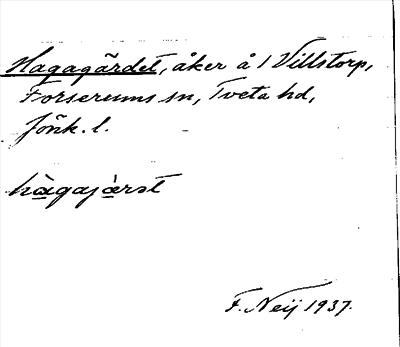 Hagagärdet, åker å 1 Villstorp,
Forserums sn, Tveta hd,
Jönk. l.
hàgajärst
F. Neij 1937.